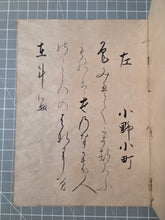 左
小野小町
色みえてうつろふ
ものは世の中の人
の心のはなにそ